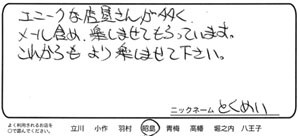 ユニークな店員さんが多く、
メール含め、楽しませてもらっています。
これからも より楽しませて下さい。
ニックネーム とくめい
よく利用されるお店を
○で囲んでください。 立川 小作 羽村 昭島 青梅 高幡 堀之内 八王子